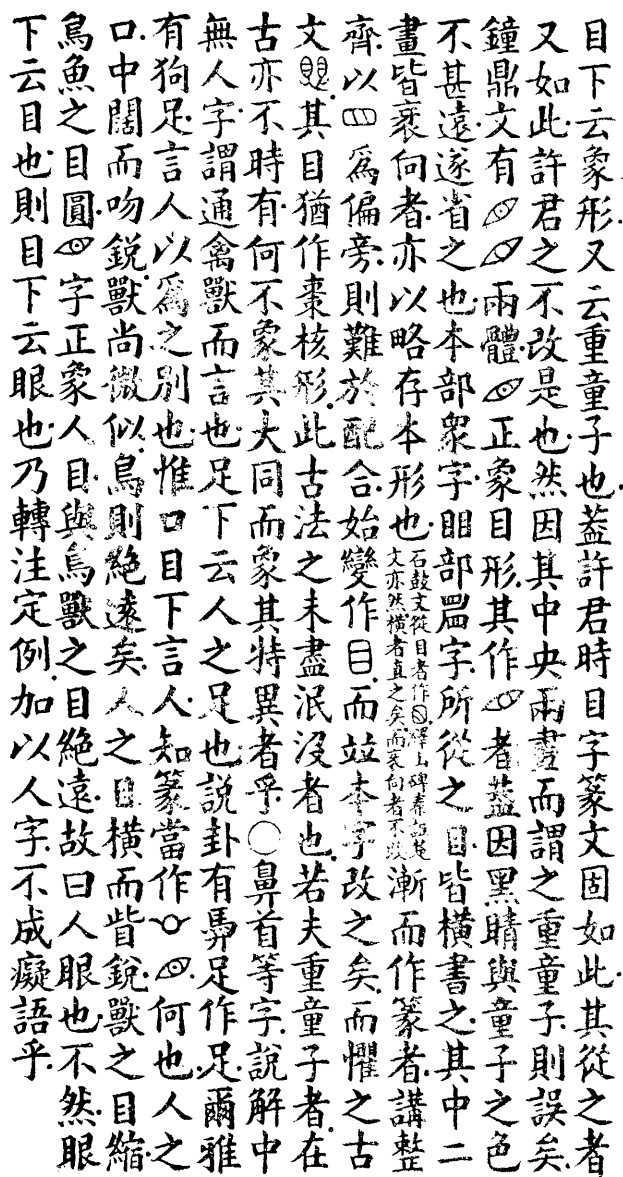 目下云象形.又云重童子也.葢許君時目字篆文固如此.其從之者
又如此.許君之不改是也.然因其中央兩畫而謂之重童子.則誤矣.
鐘鼎文有兩體.正象目形.其作者葢因黑睛與童子之色
不甚遠.遂省之也.本部眾字䀠部𥇛字.所從之目.皆橫書之.其中二
畫皆衺向者.亦以略存本形也.石鼓文從目者作.繹山碑泰詛楚文亦然橫者直之矣而衺向者不改漸而作篆者.講整
齊.以爲偏旁.則難於配合.始變作目.而竝本字改之矣.而懼之古
文.其目猶作棗核形.此古法之未盡泯沒者也.若夫重童子者.在
古亦不時有.何不象其大同而象其特異者乎.○鼻首等字.說解中
無人字.謂通禽獸而言也.足下云人之足也.說卦有馵足作足.爾雅
有狗足.言人以爲之別也.惟口目下言人.知篆當作何也.人之
口.中闊而吻銳.獸尚微似.鳥則絕遠矣.人之目橫而眥銳.獸之目縮.
鳥魚之目圓.字正象人目.與鳥獸之目絕遠.故曰人眼也.不然.眼
下云目也.則目下云眼也.乃轉注定例.加以人字.不成癡語乎.